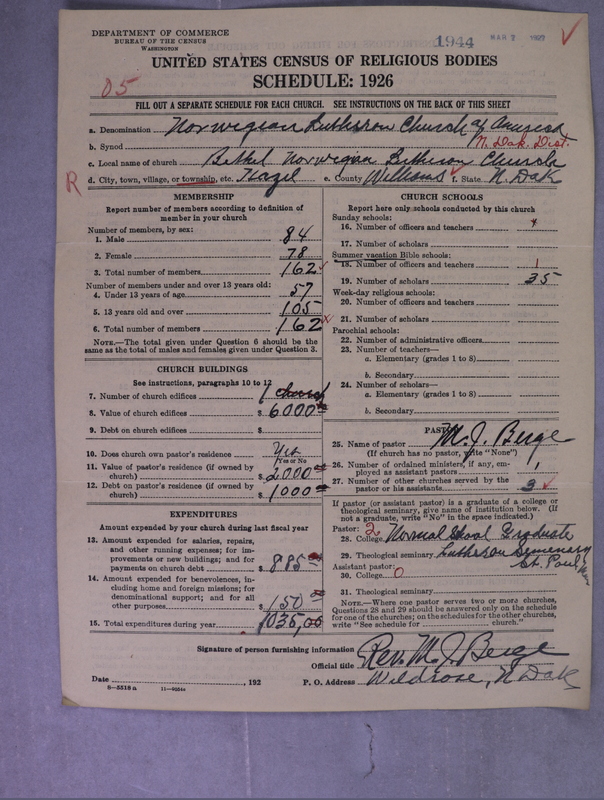 DEPARTMENT OF COMMERCE
BUREAU OF THE CENSUS
WASHINGTON
1944
MAR 2 1927
UNITED STATES CENSUS OF RELIGIOUS BODIES
SCHEDULE: 1926
05
FILL OUT A SEPARATE SCHEDULE FOR EACH CHURCH. SEE INSTRUCTIONS ON THE BACK OF THIS SHEET
a. Denomination Norwegian Lutheran Church of America
b. Synod N. Dak. Dist.
c. Local name of church Bethel Norwegian Lutheran Church
R d. City, town, village, or township, etc. Hazel e. County Williams f. State N. Dak
MEMBERSHIP
Report number of members according to definition of
member in your church
Number of members, by sex:
1. Male 84
2. Female 78
3. Total number of members 162
Number of members under and over 13 years old:
4. Under 13 years of age 57
5. 13 years old and over 105
6. Total number of members 162
NOTE.—The total given under Question 6 should be the
same as the total of males and females given under Question 3.
CHURCH BUILDINGS
See instructions, paragraphs 10 to 12
7. Number of church edifices 1 church
8. Value of church edifices $ 6000
9. Debt on church edifices $
10. Does church own pastor's residence Yes
Yes or No
11. Value of pastor's residence (if owned by
church) $ 2000
12. Debt on pastor's residence (if owned by
church) $ 1000
EXPENDITURES
Amount expended by your church during last fiscal year
13. Amount expended for salaries, repairs,
and other running expenses; for im-
provements or new buildings; and for
payments on church debt $ 885
14. Amount expended for benevolences, in-
cluding home and foreign missions; for
denominational support; and for all
other purposes $ 150
15. Total expenditures during year 1035,00
CHURCH SCHOOLS
Report here only schools conducted by this church
Sunday schools:
16. Number of officers and teachers
17. Number of scholars
Summer vacation Bible schools:
18. Number of officers and teachers 1
19. Number of scholars 35
Week-day religious schools:
20. Number of officers and teachers
21. Number of scholars
Parochial schools:
22. Number of administrative officers
23. Number of teachers—
a. Elementary (grades 1 to 8)
b. Secondary
24. Number of scholars—
a. Elementary (grades 1 to 8)
b. Secondary
PASTOR
25. Name of pastor M. J. Berge
(If church has no pastor, write "None")
26. Number of ordained ministers, if any, em-
ployed as assistant pastors 1
27. Number of other churches served by the
pastor or his assistants 3
If pastor (or assistant pastor) is a graduate of a college or
theological seminary, give name of institution below. (If
not a graduate, write "No" in the space indicated.)
Pastor: 2
28. College Normal School Graduate
29. Theological seminary Lutheran Seminary
St. Paul, Minn
Assistant pastor:
30. College 0
31. Theological seminary
NOTE.—Where one pastor serves two or more churches,
Questions 28 and 29 should be answered only on the schedule
for one of the churches; on the schedules for the other churches,
write "See schedule for church."
Signature of person furnishing information Rev. M. J. Berge
Official title
Date , 192 P. O. Address Wildrose, N Dak
8—5518 a